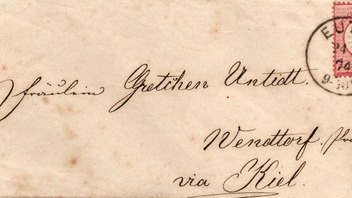 Fräulein Gretchen Untidt.
Wendtorf.
via Kiel.
EU
74
9-10